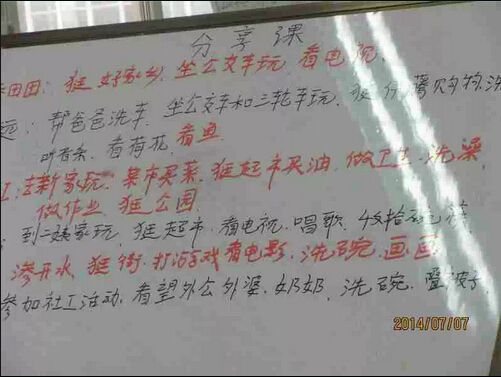 分享课
田田：逛好家乡、坐公交车玩、看电视、
远：帮爸爸洗车、坐公交车和三轮车玩、 购物、洗
听音乐、看荷花、看鱼
去新家玩、菜市买菜、逛超市买油、做卫生、洗澡、
做作业、逛公园、
到二姨家玩、逛超市、看电视、唱歌、收拾
渗开水、逛街、打游戏看电影、洗碗、画画
参加社工活动、看望外公外婆、奶奶、洗碗、叠被子、
2014/07/07